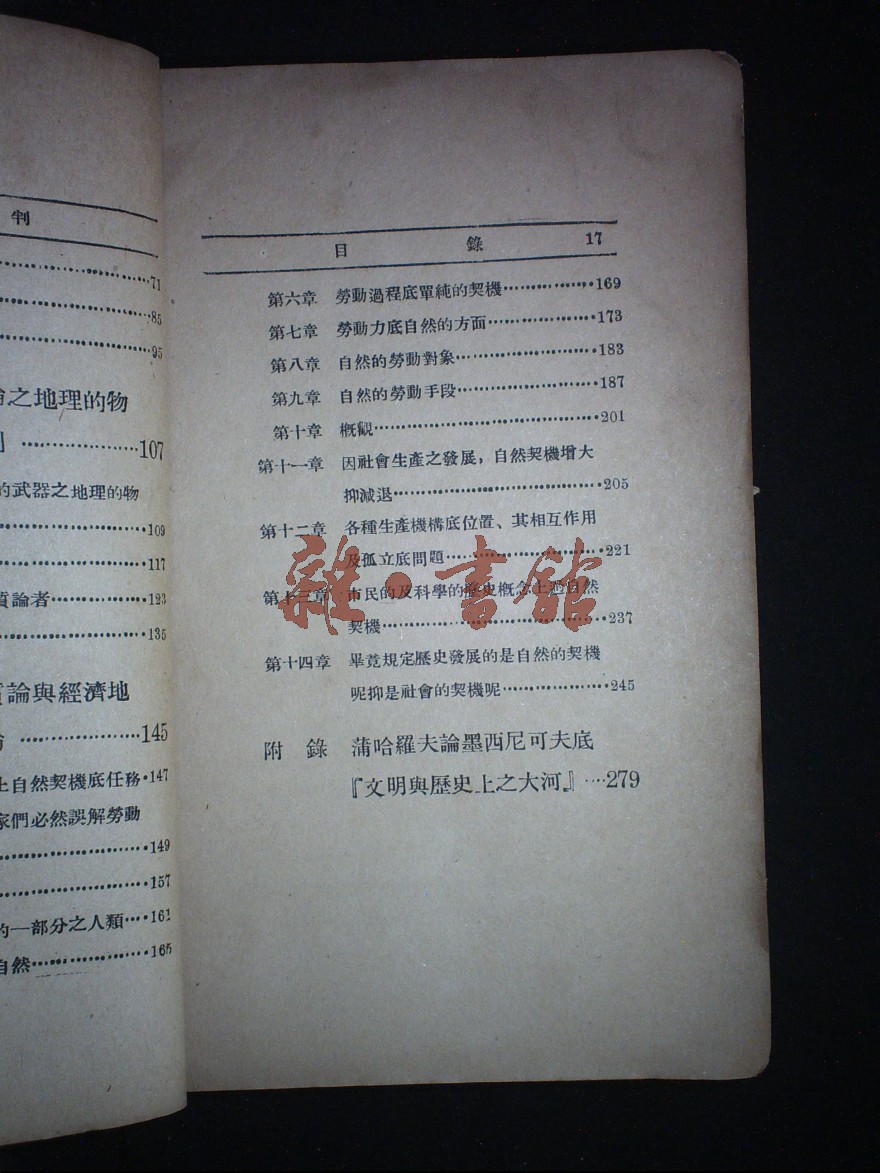 判
71
85
95
之地理的物
107
的武器之地理的物
109
117
質論者 123
135
論與經濟地
145
自然契機底任務 147
家們必然誤解勞動
149
157
的一部分之人類 161
自然 165
目錄 17
第六章 勞動過程底單純的契機 169
第七章 勞動力底自然的方面 173
第八章 自然的勞動對象 183
第九章 自然的勞動手段 187
第十章 概觀 201
第十一章 因社會生產之發展，自然契機增大
抑減退 205
第十二章 各種生產機構底位置、其相互作用
及孤立底問題 221
第十三章 市民的及科學的歷史概念上避自然
契機 237
第十四章 畢竟規定歷史發展的是自然的契機
呢抑是社會的契機呢 245
附錄 蒲哈羅夫論墨西尼可夫底
『文明與歷史上之大河』 279
雜·書館